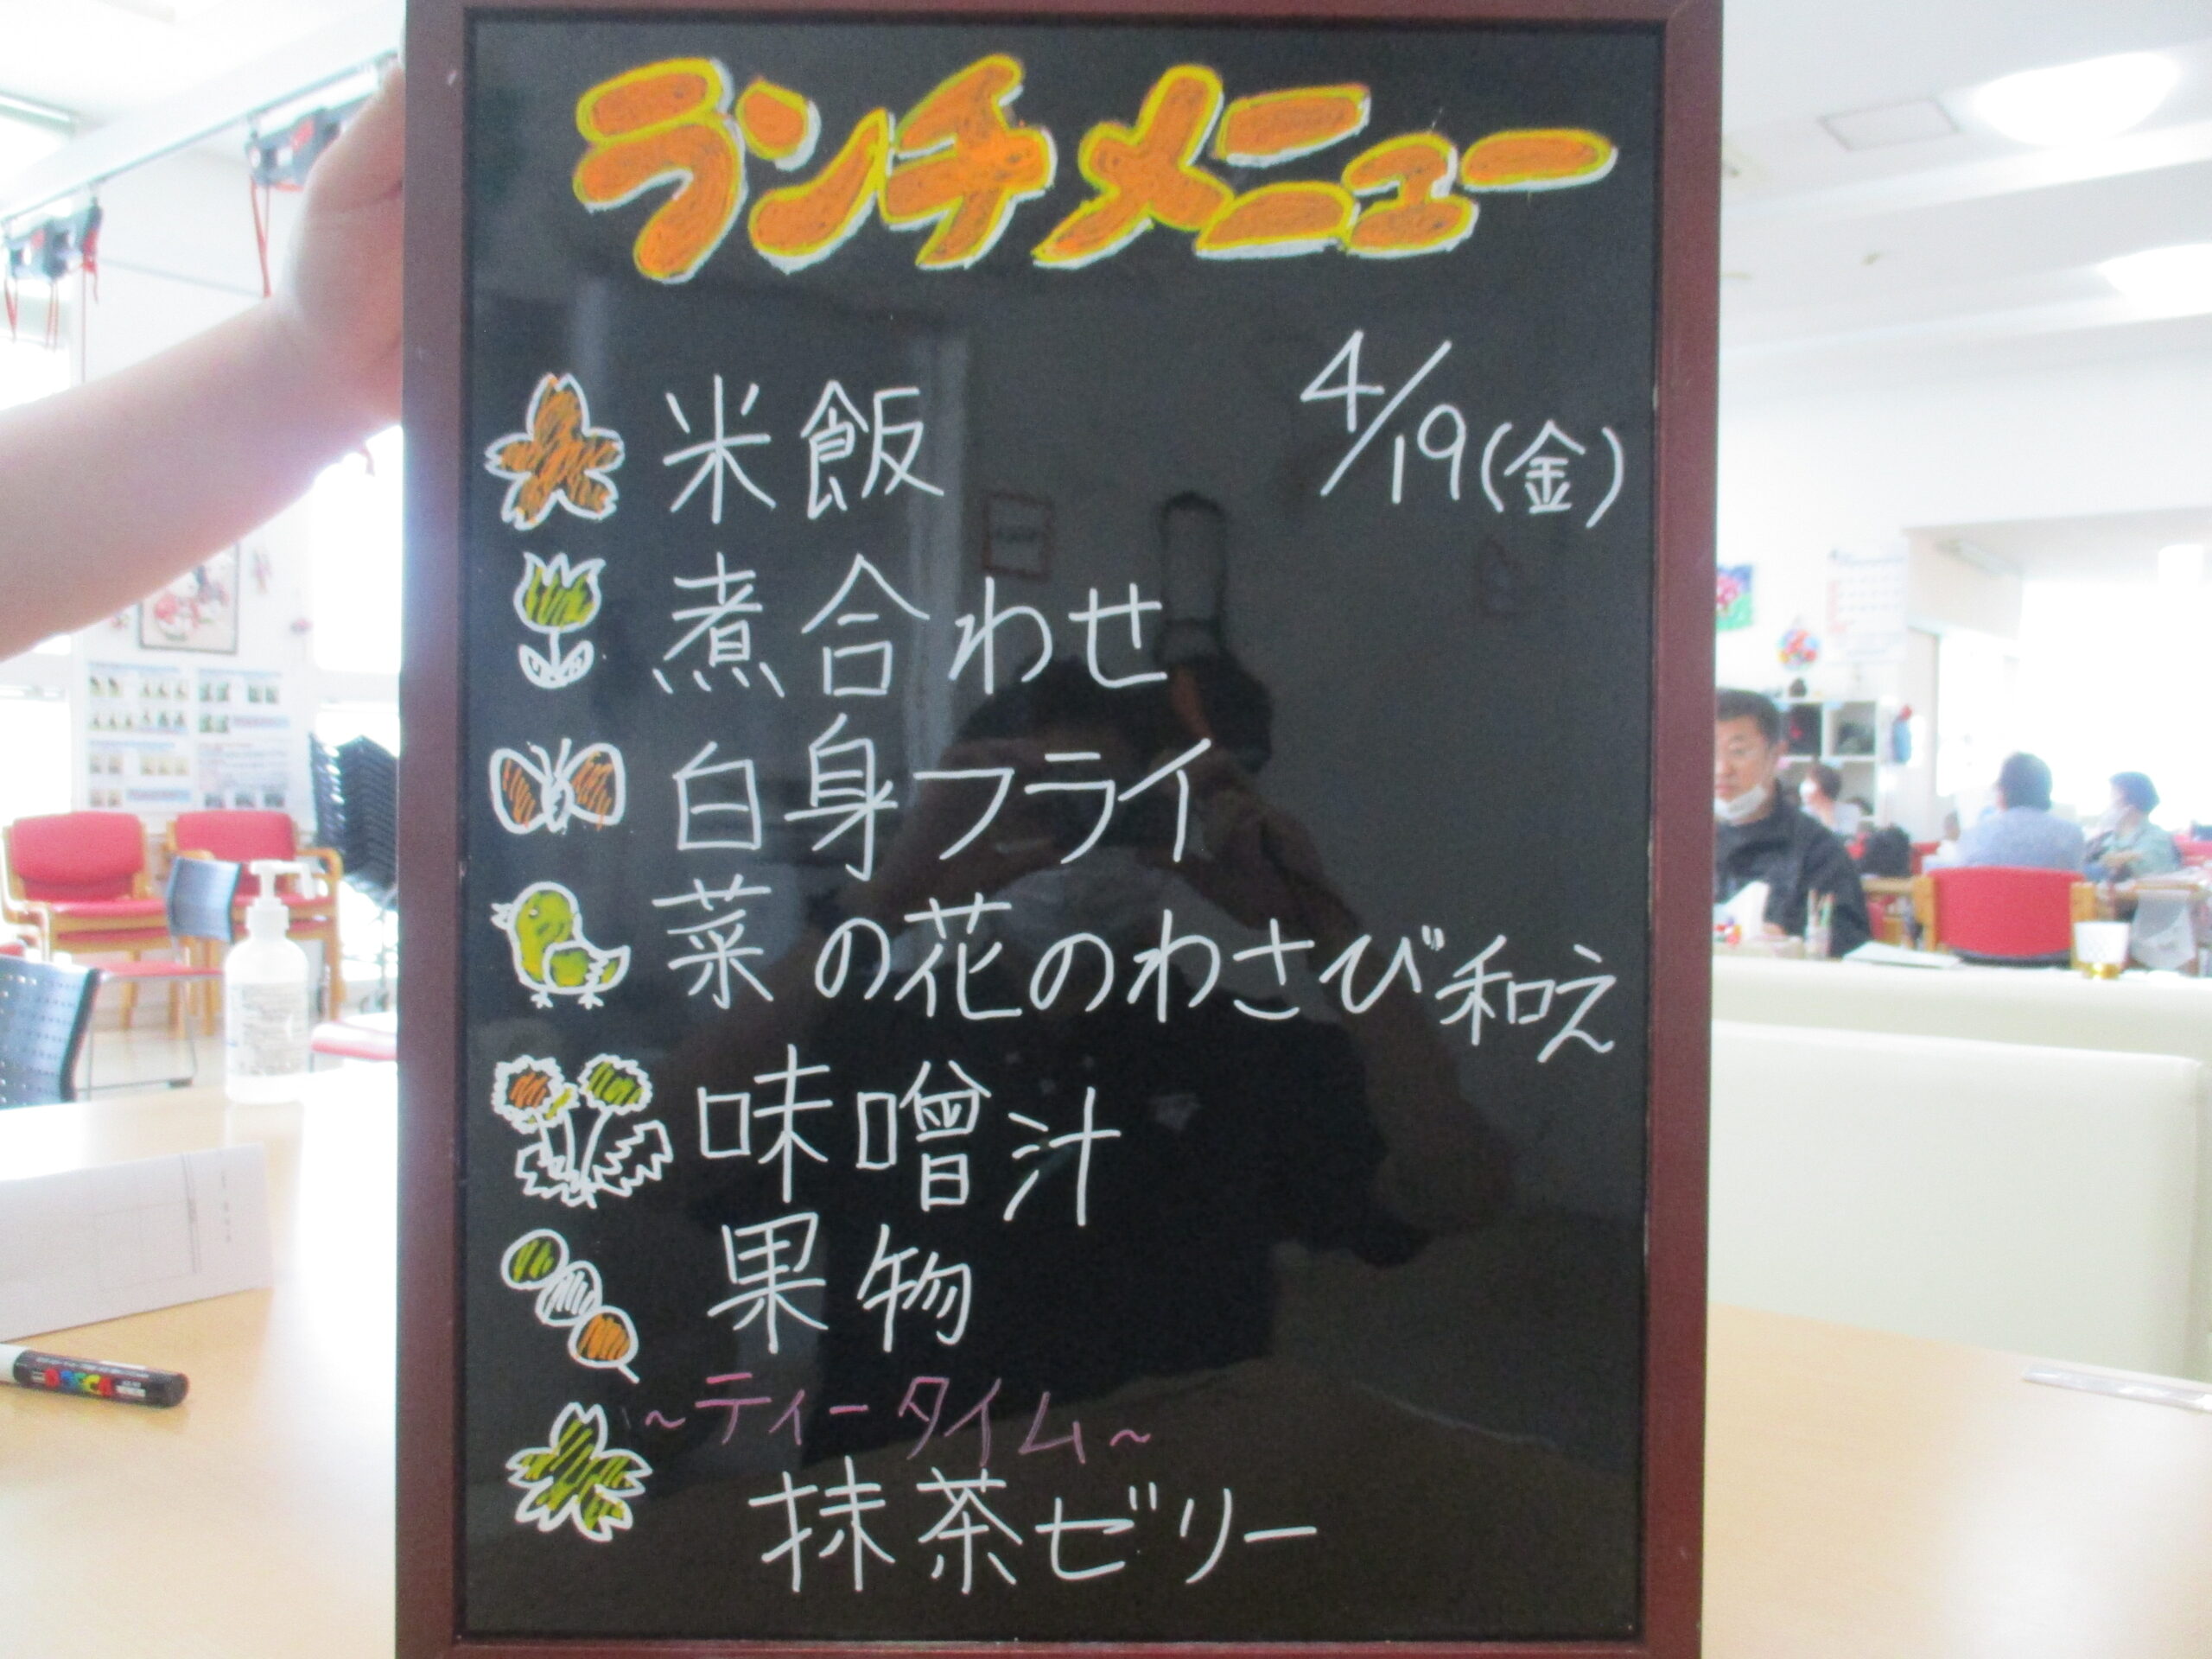 ランチメニュー
4/19(金)
米飯
煮合わせ
白身フライ
菜の花のわさび和え
味噌汁
果物
~ティータイム~
抹茶ゼリー
POSCA